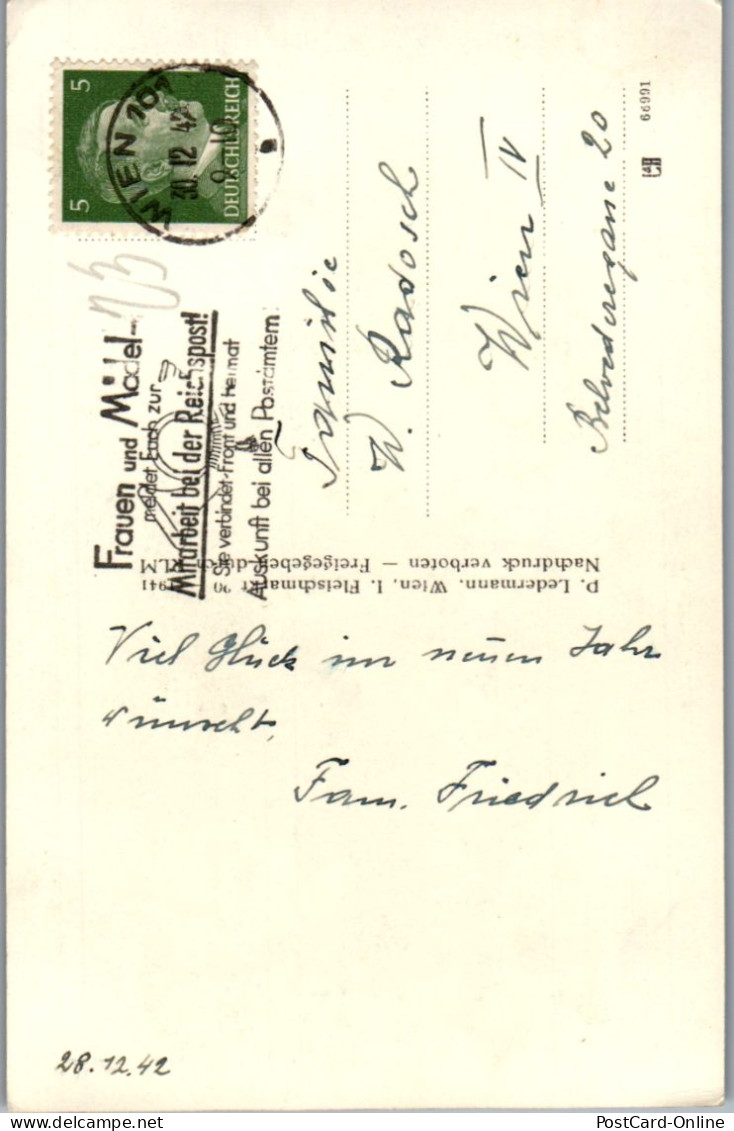 5 5
DEUTSCHES REICH
WIEN 101
30. 12 42
9 - 10
Frauen und Mädel -
meldet Euch zur
Mitarbeit bei der Reichspost!
Sie verbindet Front und Heimat
Auskunft bei allen Postämtern
Familie
W. Radosch
Wien IV
Belvederegasse 20
66991
P. Ledermann, Wien, I. Fleischmarkt 20 1941
Nachdruck verboten — Freigegeben durch RLM
Viel Glück im neuen Jahr
wünscht,
Fam. Friedrich
28.12.42
PostCard-Online